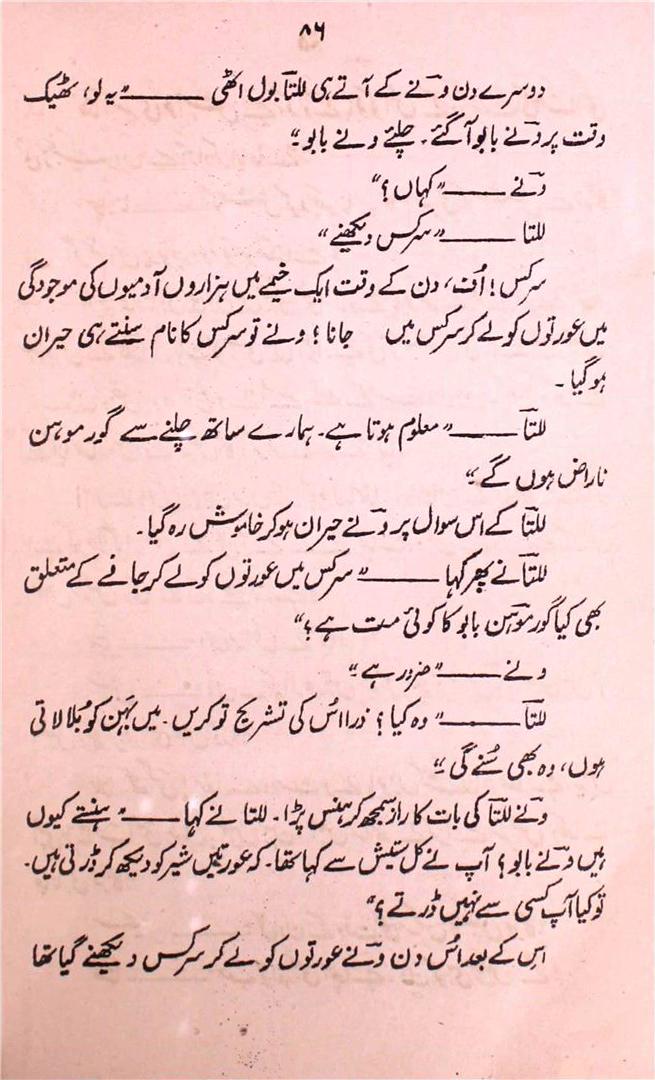 ۸۶
دوسرے دن ونے کے آتے ہی للتا بول اٹھی ـــــــ "یہ لو، ٹھیک
وقت پر ونے بابو آ گئے۔ چلئے ونے بابو"
ونے ـــــــ "کہاں؟"
للتا ـــــــ "سرکس دیکھنے"
سرکس! اُف، دن کے وقت ایک خیمے میں ہزاروں آدمیوں کی موجودگی
میں عورتوں کو لے کر سرکس میں جانا؛ ونے تو سرکس کا نام سنتے ہی حیران
ہو گیا۔
للتا ـــــــ "معلوم ہوتا ہے۔ ہمارے ساتھ چلنے سے گور موہن
ناراض ہوں گے"
للتا کے اس سوال پر ونے حیران ہو کر خاموش رہ گیا۔
للتا نے پھر کہا ـــــــ "سرکس میں عورتوں کو لے کر جانے کے متعلق
بھی کیا گور موہن بابو کا کوئی مت ہے؟"
ونے ـــــــ "ضرور ہے"
للتا ـــــــ "وہ کیا؟ ذرا اُس کی تشریح تو کریں۔ میں بہن کو بُلا لاتی
ہوں، وہ بھی سُنے گی"
ونے للتا کی بات کا راز سمجھ کر ہنس پڑا۔ للتا نے کہا ـــــــ "ہنستے کیوں
ہیں ونے بابو؟ آپ نے کل ستیش سے کہا تھا۔ کہ عورتیں شیر کو دیکھ کر ڈرتی ہیں۔
تو کیا آپ کسی سے نہیں ڈرتے؟"
اِس کے بعد اُس دن ونے عورتوں کو لے کر سرکس دیکھنے گیا تھا